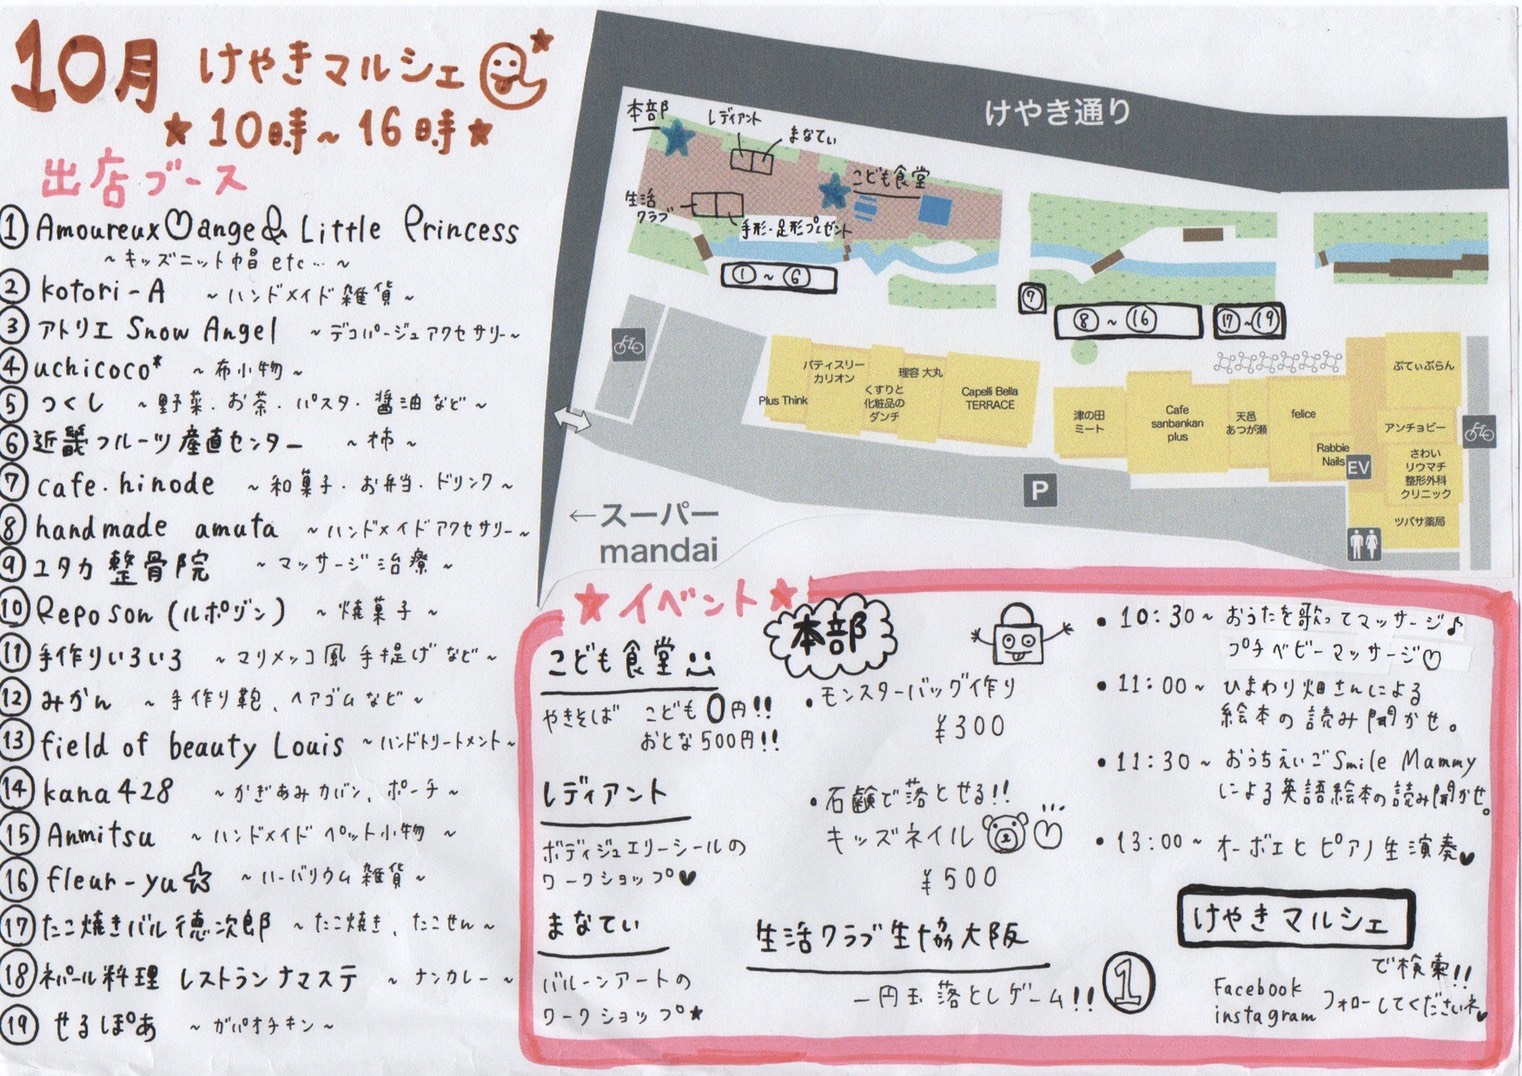 10月 けやきマルシェ
★10時~16時★
出店ブース
① Amoureux♡ange& Little Princess
~キッズニット帽 etc… ~
② kotori-A ~ハンドメイド雑貨~
③ アトリエ Snow Angel ~デコパージュアクセサリー~
④ uchicoco* ~布小物~
⑤ つくし ~野菜・お茶・パスタ・醤油など~
⑥ 近畿フルーツ産直センター ~柿~
⑦ cafe・hinode ~和菓子・お弁当・ドリンク~
⑧ handmade amuta ~ハンドメイドアクセサリー~
⑨ ユタカ整骨院 ~マッサージ治療~
⑩ Reposon(ルポゾン) ~焼菓子~
⑪ 手作りいろいろ ~マリメッコ風手提げなど~
⑫ みかん ~手作り鞄、ヘアゴムなど~
⑬ field of beauty Louis ~ハンドトリートメント~
⑭ kana428 ~かぎあみカバン、ポーチ~
⑮ Anmitsu ~ハンドメイド ペット小物~
⑯ fleur-yu☆ ~ハーバリウム雑貨~
⑰ たこ焼きバル徳次郎 ~たこ焼き、たこせん~
⑱ ネパール料理 レストランナマステ ~ナンカレー~
⑲ せるぽあ ~ガパオチキン~
けやき通り
本部
レディアント
まなてぃ
こども食堂
生活
クラブ
手形・足形プレゼント
①~⑥
⑦
⑧~⑯
⑰~⑲
Plus Think
パティスリー
カリオン
くすりと
化粧品の
ダンチ
理容 大丸
Capelli Bella
TERRACE
津の田
ミート
Cafe
sanbankan
plus
天邑
あつが瀬
felice
Rabbie
Nails
EV
ぷてぃぶらん
アンチョビー
さわい
リウマチ
整形外科
クリニック
ツバサ薬局
P
←スーパー
mandai
★イベント★
こども食堂
やきそば こども0円!!
おとな500円!!
レディアント
ボディジュエリーシールの
ワークショップ♥
まなてぃ
バルーンアートの
ワークショップ★
本部
・モンスターバッグ作り
¥300
・石鹸で落とせる!!
キッズネイル♡
¥500
生活クラブ生協大阪
一円玉落としゲーム!!
・10:30~ おうたを歌ってマッサージ♪
プチベビーマッサージ♡
・11:00~ ひまわり畑さんによる
絵本の読み聞かせ。
・11:30~ おうちえいごSmile Mammy
による英語絵本の読み聞かせ。
・13:00~ オーボエとピアノ生演奏♥
けやきマルシェ
で検索!!
Facebook
instagram フォローしてくださいネ♥
①